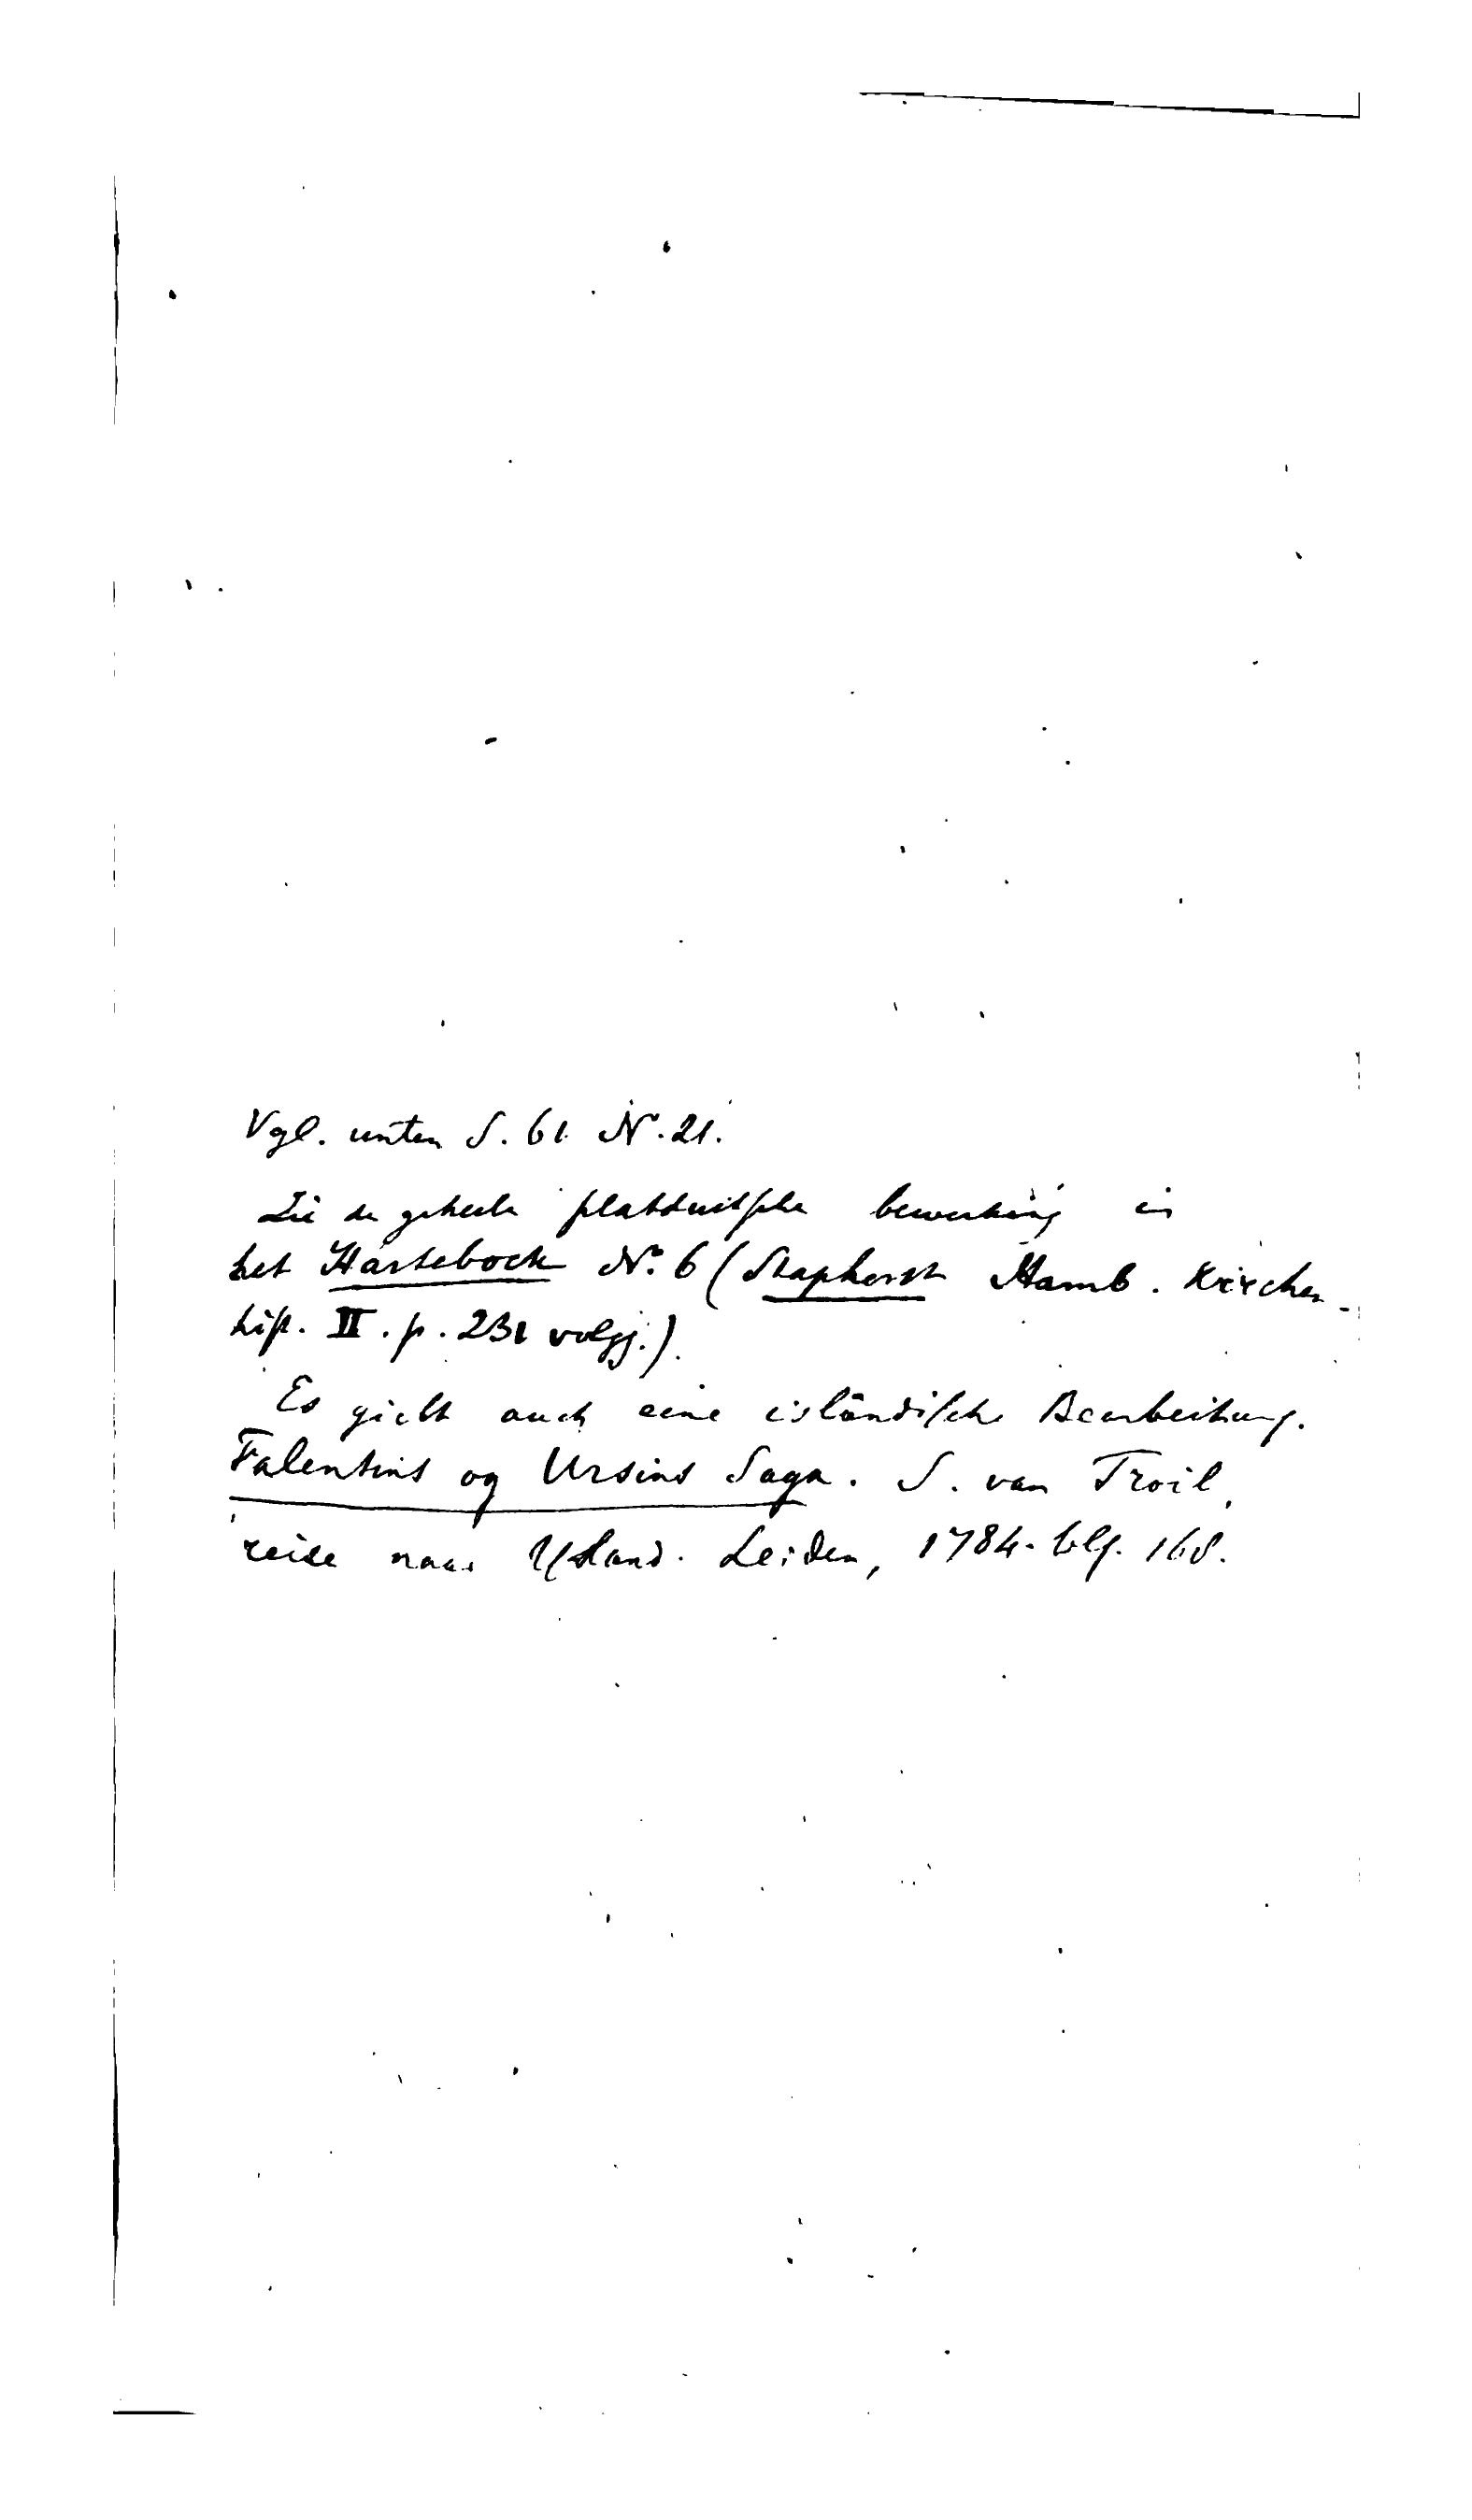 Vgl. unten S. 61. N. 21.
Zie de geheele platduitsche bewerking in
het Hartebock No. 6 (Staphorst Hamb. Kirchen-
hist. II. p. 231 volgg.).
Es giebt auch eine isländische Bearbeitung.
Falentins og Ursins Saga. S. van Troil,
reise naar Ysland. Leiden, 1784. blg. 168.